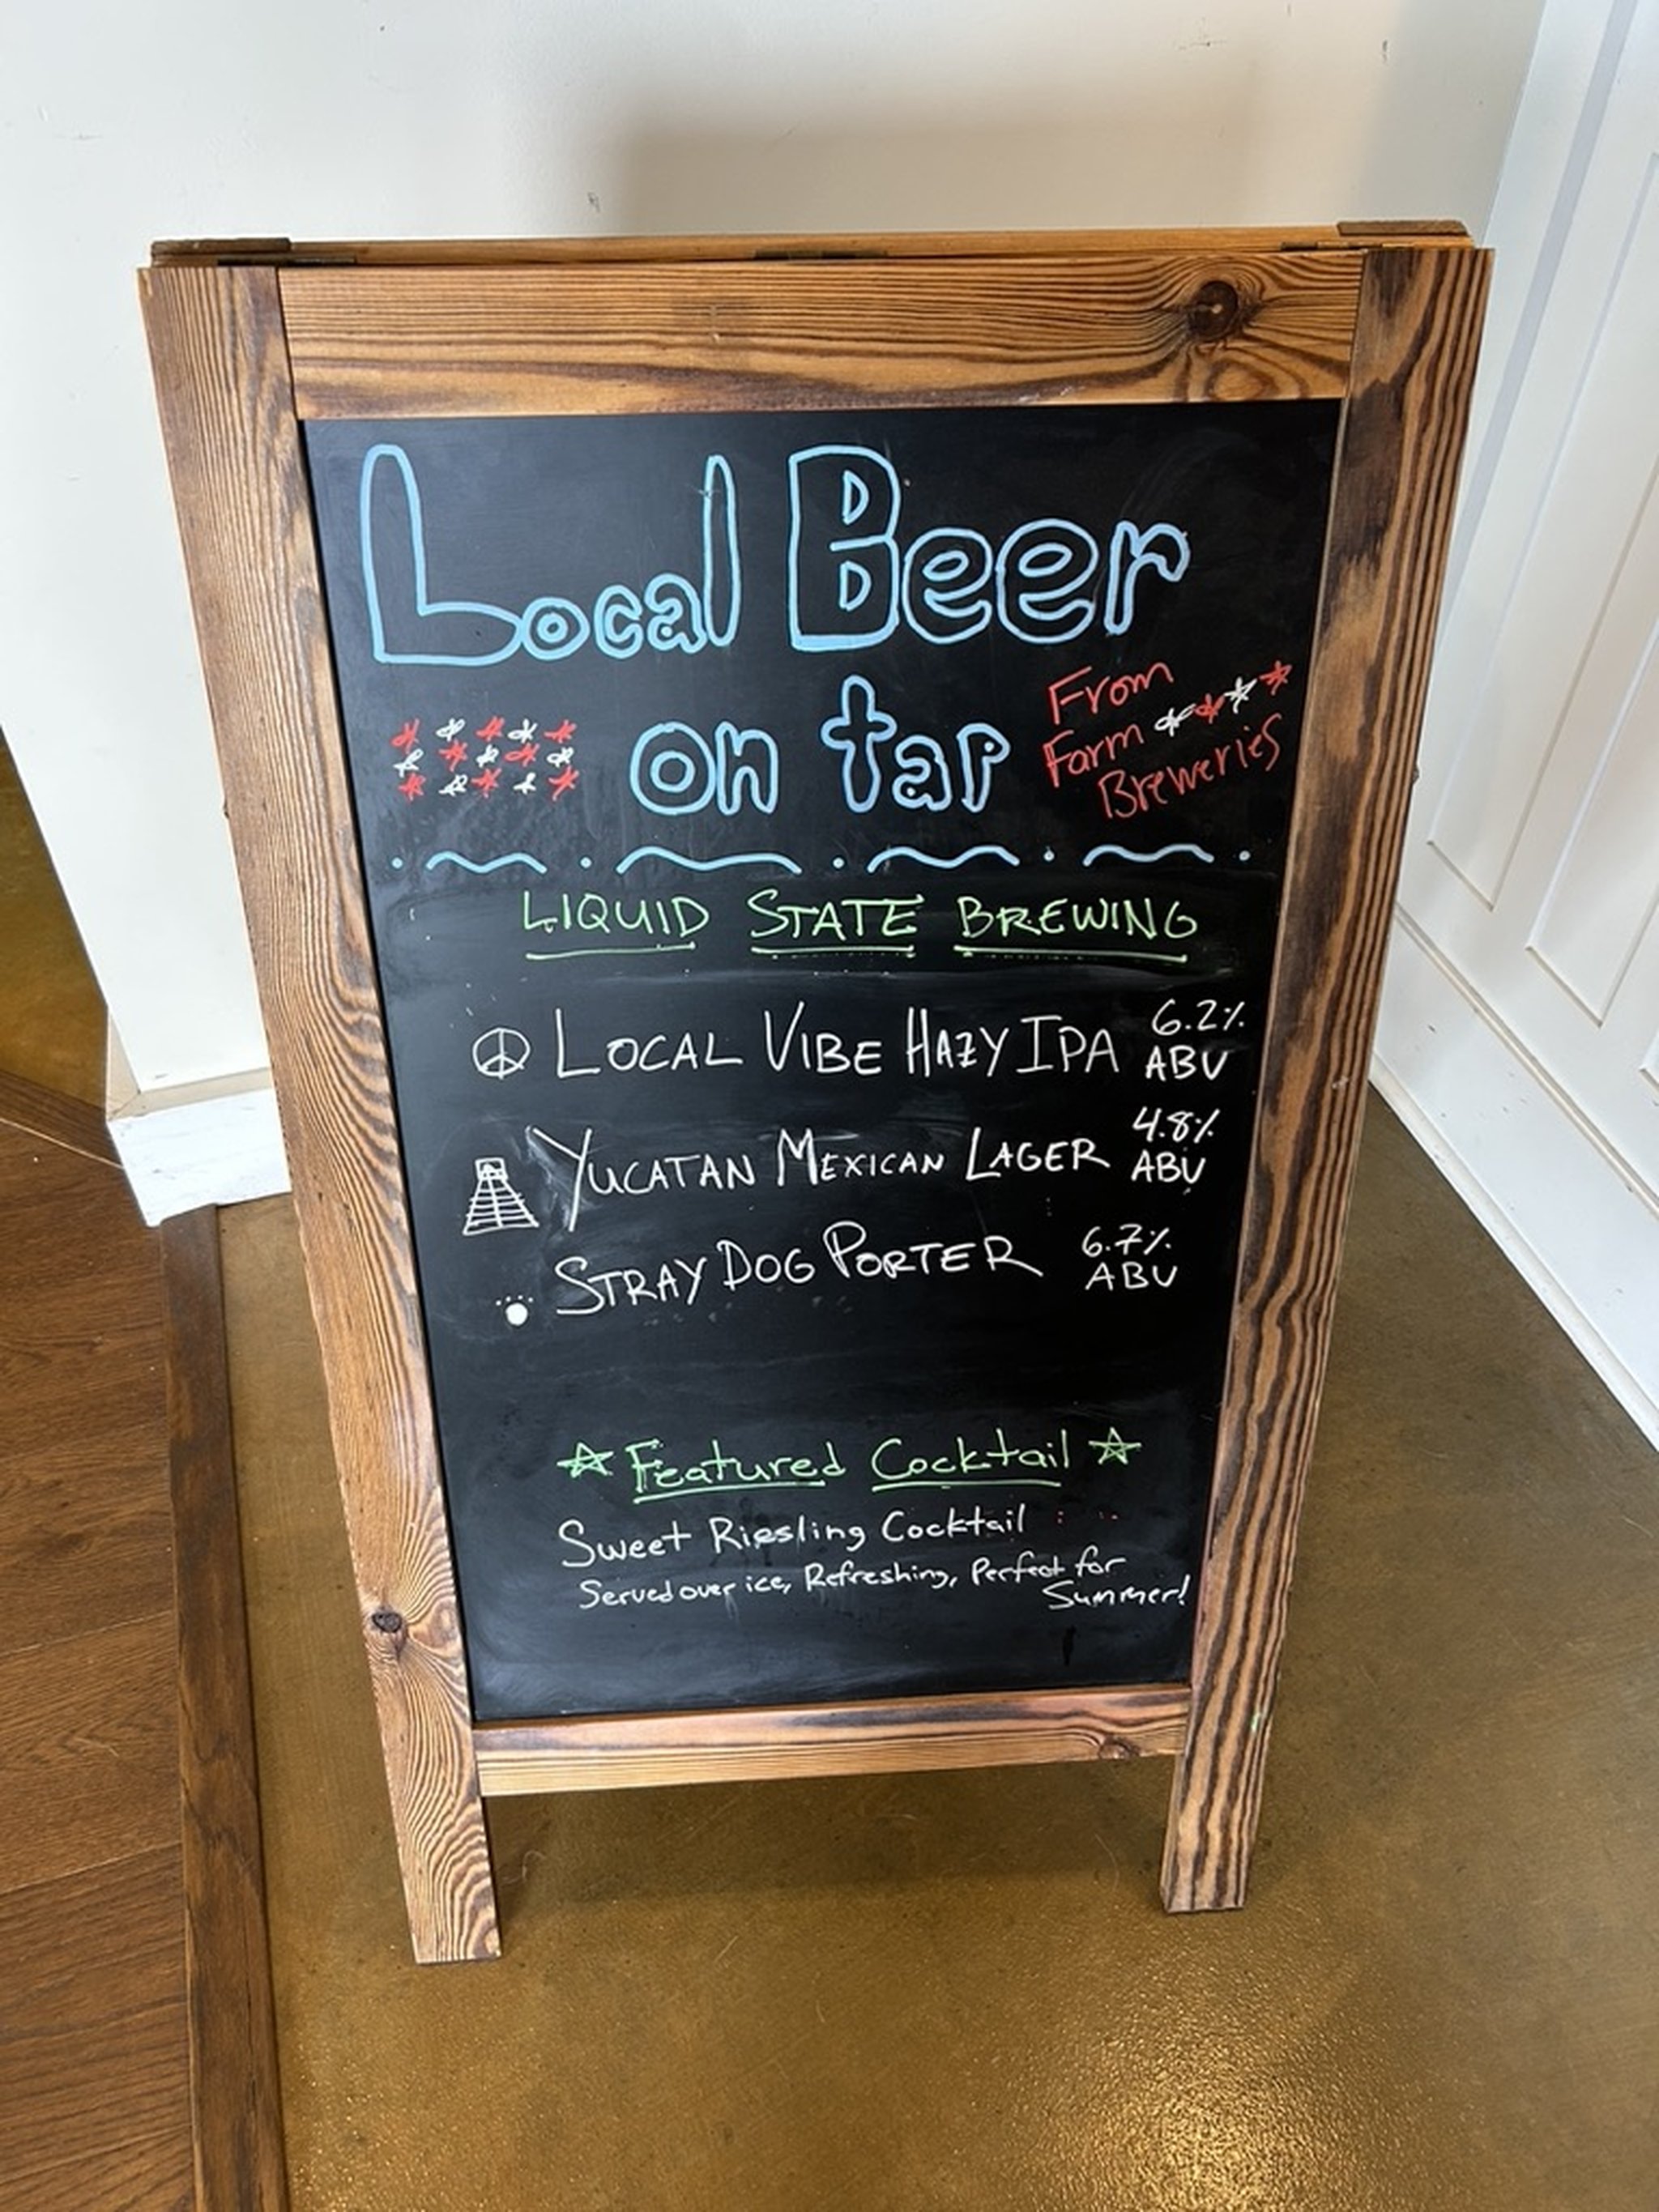 Local Beer
on tap
From
Farm
Breweries
LIQUID STATE BREWING
LOCAL VIBE HAZY IPA 6.2% ABV
YUCATAN MEXICAN LAGER 4.8% ABV
STRAY DOG PORTER 6.7% ABV
Featured Cocktail
Sweet Riesling Cocktail
Served over ice, Refreshing, Perfect for
Summer!